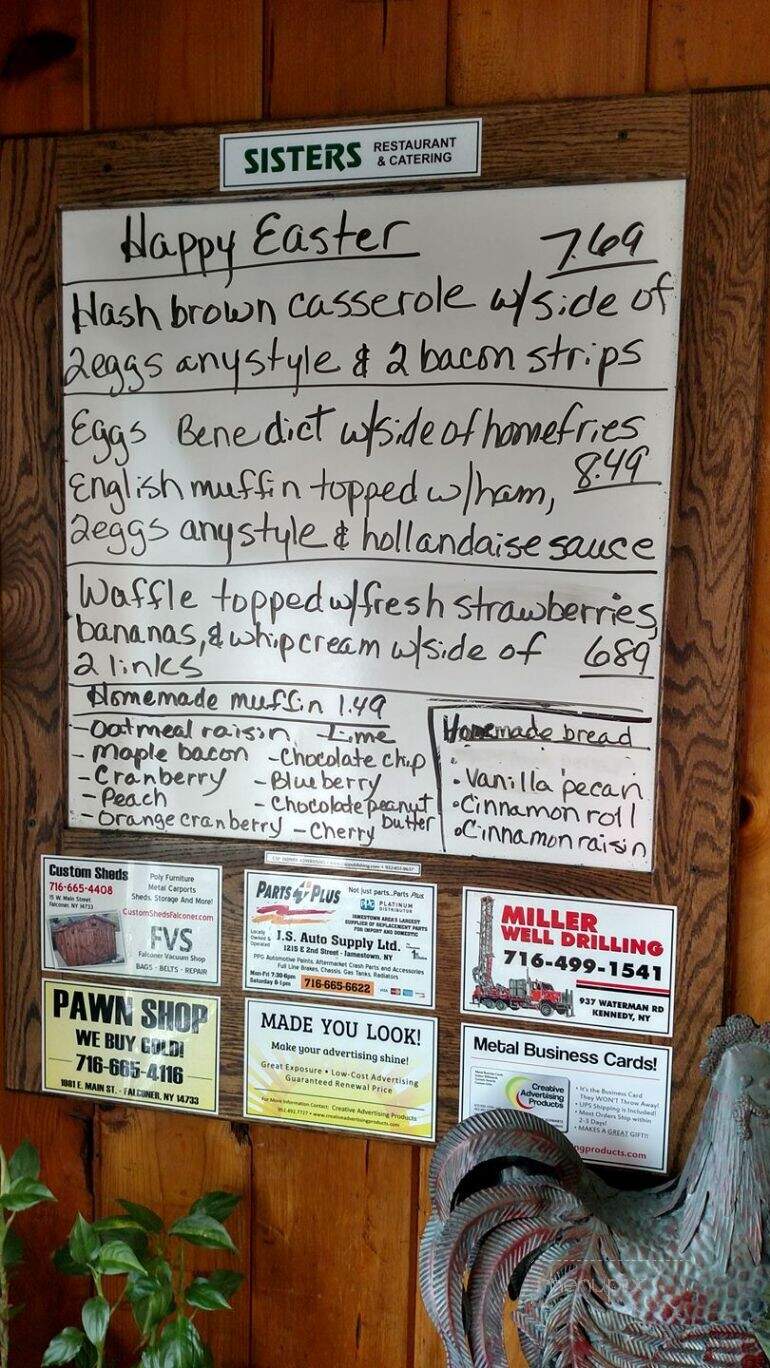 SISTERS RESTAURANT & CATERING
Happy Easter 7.69
Hash brown casserole w/side of
2eggs any style & 2 bacon strips
Eggs Benedict w/side of homefries
English muffin topped w/ham, 8.49
2eggs any style & hollandaise sauce
Waffle topped w/fresh strawberries,
bananas, & whip cream w/side of 689
2 links
Homemade muffin 1.49
-Oatmeal raisin -Lime
- maple bacon -Chocolate chip
-Cranberry -Blueberry
-Peach -Chocolate peanut butter
-Orange cranberry -Cherry
Homemade bread
• Vanilla pecan
• Cinnamon roll
• Cinnamon raisin
Custom Sheds
716-665-4408
15 W. Main Street
Falconer, NY 14733
Poly Furniture
Metal Carports
Sheds, Storage And More!
CustomShedsFalconer.com
FVS
Falconer Vacuum Shop
BAGS - BELTS - REPAIR
PARTS PLUS
Not just parts...Parts Plus
PPG PLATINUM
DISTRIBUTOR
JAMESTOWN AREA'S LARGEST
SUPPLIER OF REPLACEMENT PARTS
FOR IMPORT AND DOMESTIC
Locally Owned & Operated
J.S. Auto Supply Ltd.
1215 E 2nd Street - Jamestown, NY
PPG Automotive Paints, Aftermarket Crash Parts and Accessories
Full Line Brakes, Chassis, Gas Tanks, Radiators
Mon-Fri 7:30-6pm
Saturday 8-1pm
716-665-6622
MILLER
WELL DRILLING
716-499-1541
937 WATERMAN RD
KENNEDY, NY
PAWN SHOP
WE BUY GOLD!
716-665-4116
1981 E. MAIN ST. - FALCONER, NY 14733
MADE YOU LOOK!
Make your advertising shine!
Great Exposure • Low-Cost Advertising
Guaranteed Renewal Price
For More Information Contact: Creative Advertising Products
952.492.7727 • www.creativeadvertisingproducts.com
Metal Business Cards!
Creative
Advertising
Products
• It's the Business Card
They WON'T Throw Away!
• UPS Shipping is Included!
• Most Orders Ship within
2-3 Days!
• MAKES A GREAT GIFT!!
ngproducts.com
menupix